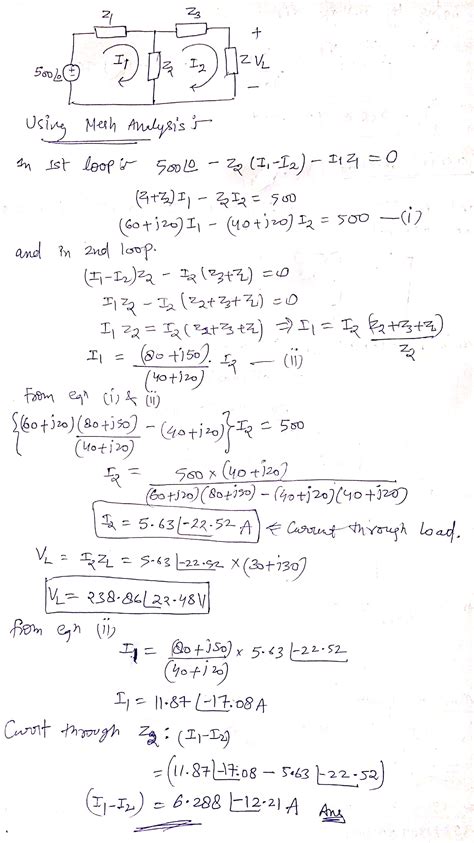 Z1 Z3 +
500∠0 I1 Z2 I2 Z VL
−
Using Mesh Analysis :-
In 1st loop :- 500∠0 − Z2 (I1−I2) − I1Z1 = 0
(Z1+Z2)I1 − Z2I2 = 500
(60+j20)I1 − (40+j20)I2 = 500 —(i)
and in 2nd loop.
(I1−I2)Z2 − I2(Z3+ZL) = 0
I1Z2 − I2(Z2+Z3+ZL) = 0
I1Z2 = I2(Z2+Z3+ZL) ⇒ I1 = I2 (Z2+Z3+ZL)/Z2
I1 = (80+j50)/(40+j20) · I2 — (ii)
From eqn (i) & (ii)
{(60+j20)(80+j50)/(40+j20) − (40+j20)} I2 = 500
I2 = 500×(40+j20)/((60+j20)(80+j50) − (40+j20)(40+j20))
I2 = 5.63∠-22.52 A ← Current through load.
VL = I2ZL = 5.63∠-22.52 × (30+j30)
VL = 238.86∠22.48V
from eqn (ii)
I1 = (80+j50)/(40+j20) × 5.63∠-22.52
I1 = 11.87∠-17.08A
Currnt through Z2 : (I1−I2)
= (11.87∠-17.08 − 5.63∠-22.52)
(I1−I2) = 6.288∠-12.21 A Ans